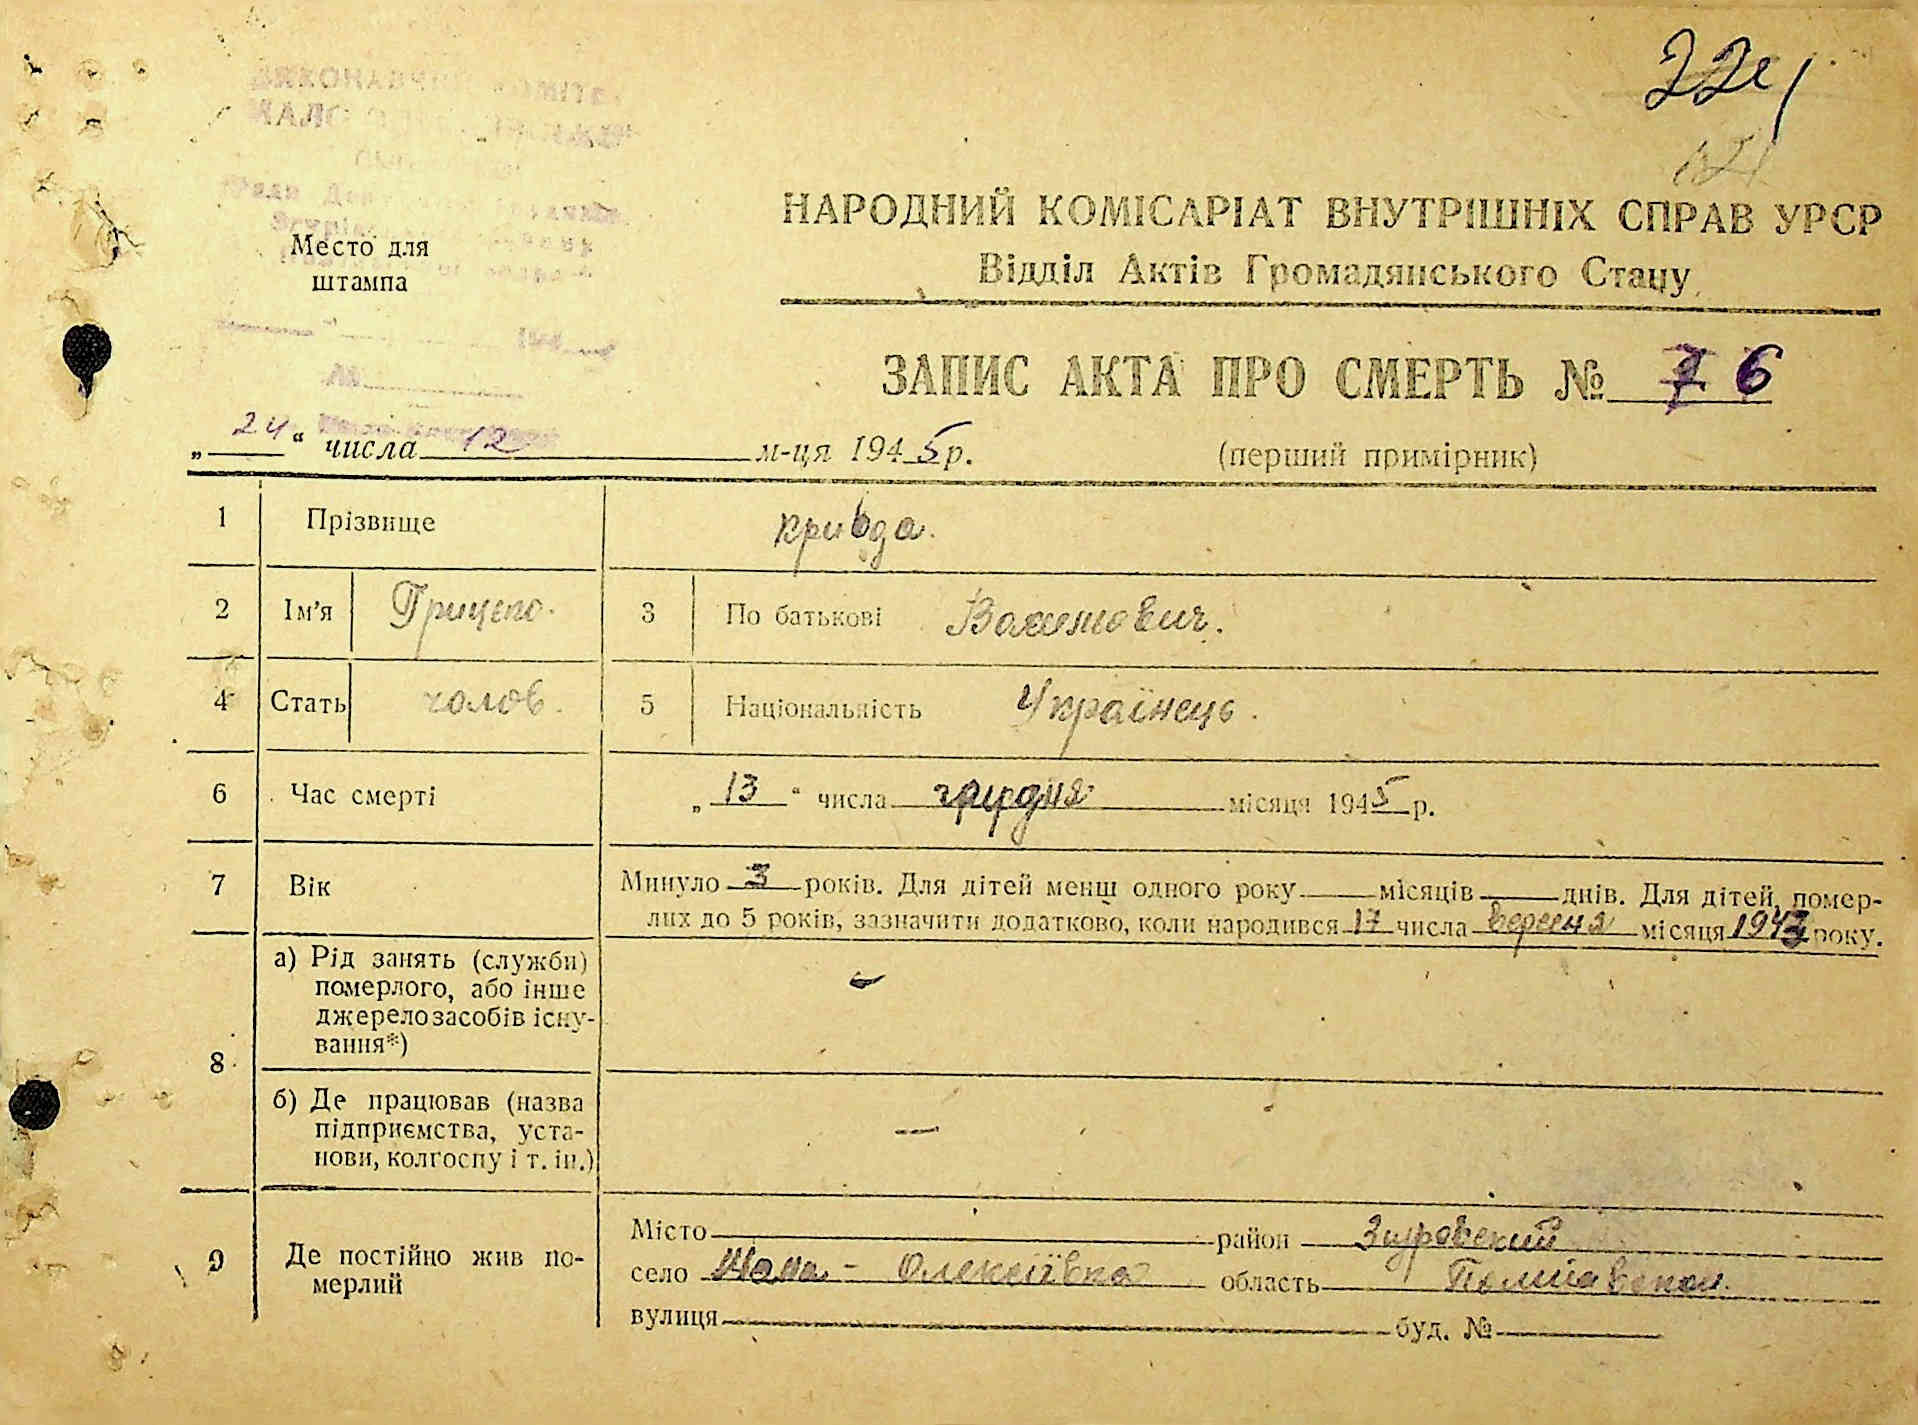 НАРОДНИЙ КОМІСАРІАТ ВНУТРІШНІХ СПРАВ УРСР
Відділ Актів Громадянського Стану
Место для
штампа
ЗАПИС АКТА ПРО СМЕРТЬ № 76
„24“ числа 12 м-ця 1945 р.
(перший примірник)
1 Прізвище Кривда.
2 Ім'я Грицько. 3 По батькові
4 Стать чолов. 5 Національність Українець.
6 Час смерті „13“ числа грудня місяця 1945 р.
7 Вік Минуло 3 років. Для дітей менш одного року місяців днів. Для дітей, помер-
лих до 5 років, зазначити додатково, коли народився 17 числа вересня місяця 1943 року.
8 а) Рід занять (служби)
померлого, або інше
джерело засобів існу-
вання*) -
б) Де працював (назва
підприємства, уста-
нови, колгоспу і т. ін.) —
9 Де постійно жив по-
мерлий
Місто район Згуровский
село Мала - Олексіївка область Полтавской.
вулиця буд. №